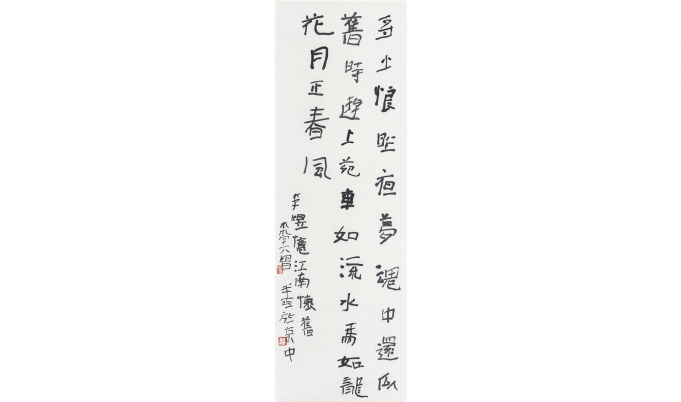 多少恨昨夜夢魂中還似
舊時遊上苑車如流水馬如龍
花月正春風
李煜憶江南懷舊
於京中